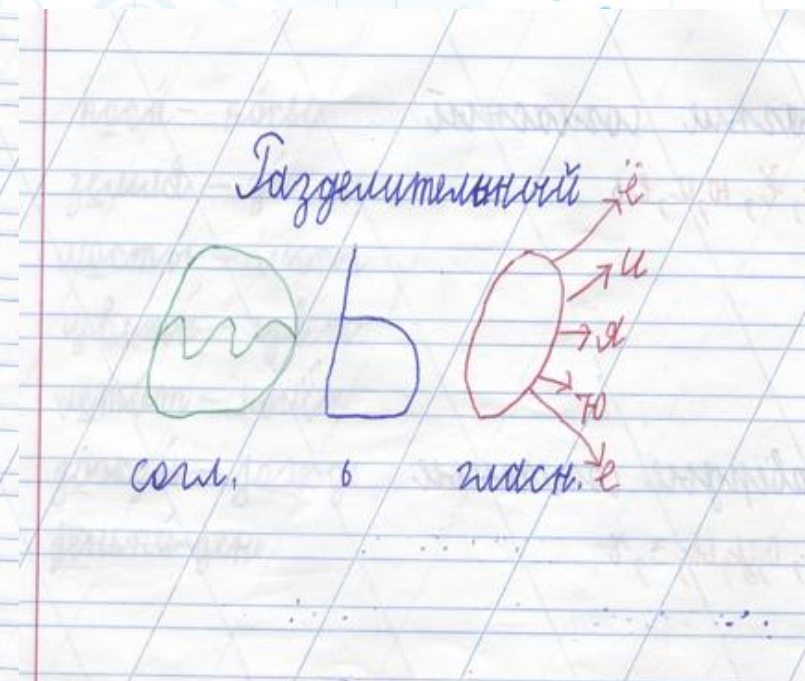 Разделительный
ё
и
ь
я
ю
согл. ь гласн. е